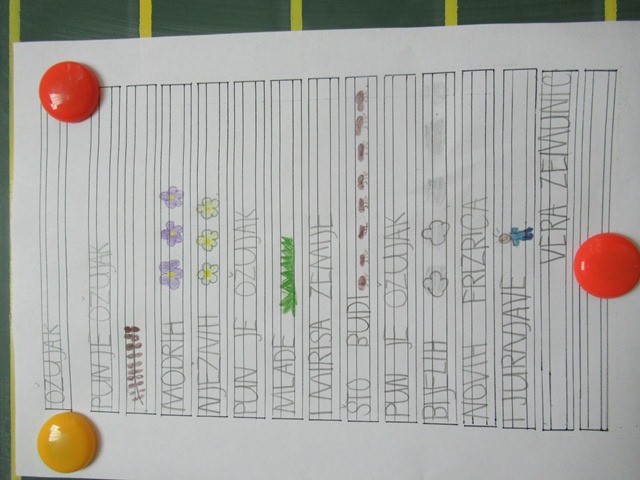 OŽUJAK
PUN JE OŽUJAK
MODRIH
NJEŽNIH
PUN JE OŽUJAK
MLADE
I MIRISA ZEMLJE
ŠTO BUDI
PUN JE OŽUJAK
BIJELIH
NOVIH FRIZRICA
I JURNJAVE
VERA ZEMUNIĆ